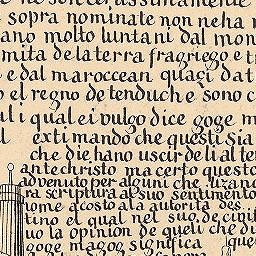 sopra nominate non ne ha n
ano molto luntani dal mon
mita dela terra fra griego e tr
e dal maroccean quasi dat
o el regno de tenduch e sono c
al i qual ei vulgo dice goge m
extimando che questi sia
che die hano uscir de li al te
antechristo ma certo questo
advenuto per alguni che tirano
ra scriptura al suo sentimento
nome acosto a la autorita des
tino el qual nel suo de civit
uo la opinion de queli che di
goge magog significa que